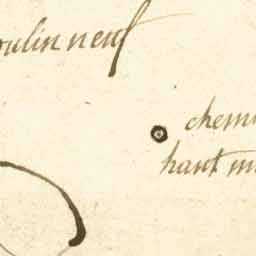 oulin neuf
chemi
haut m